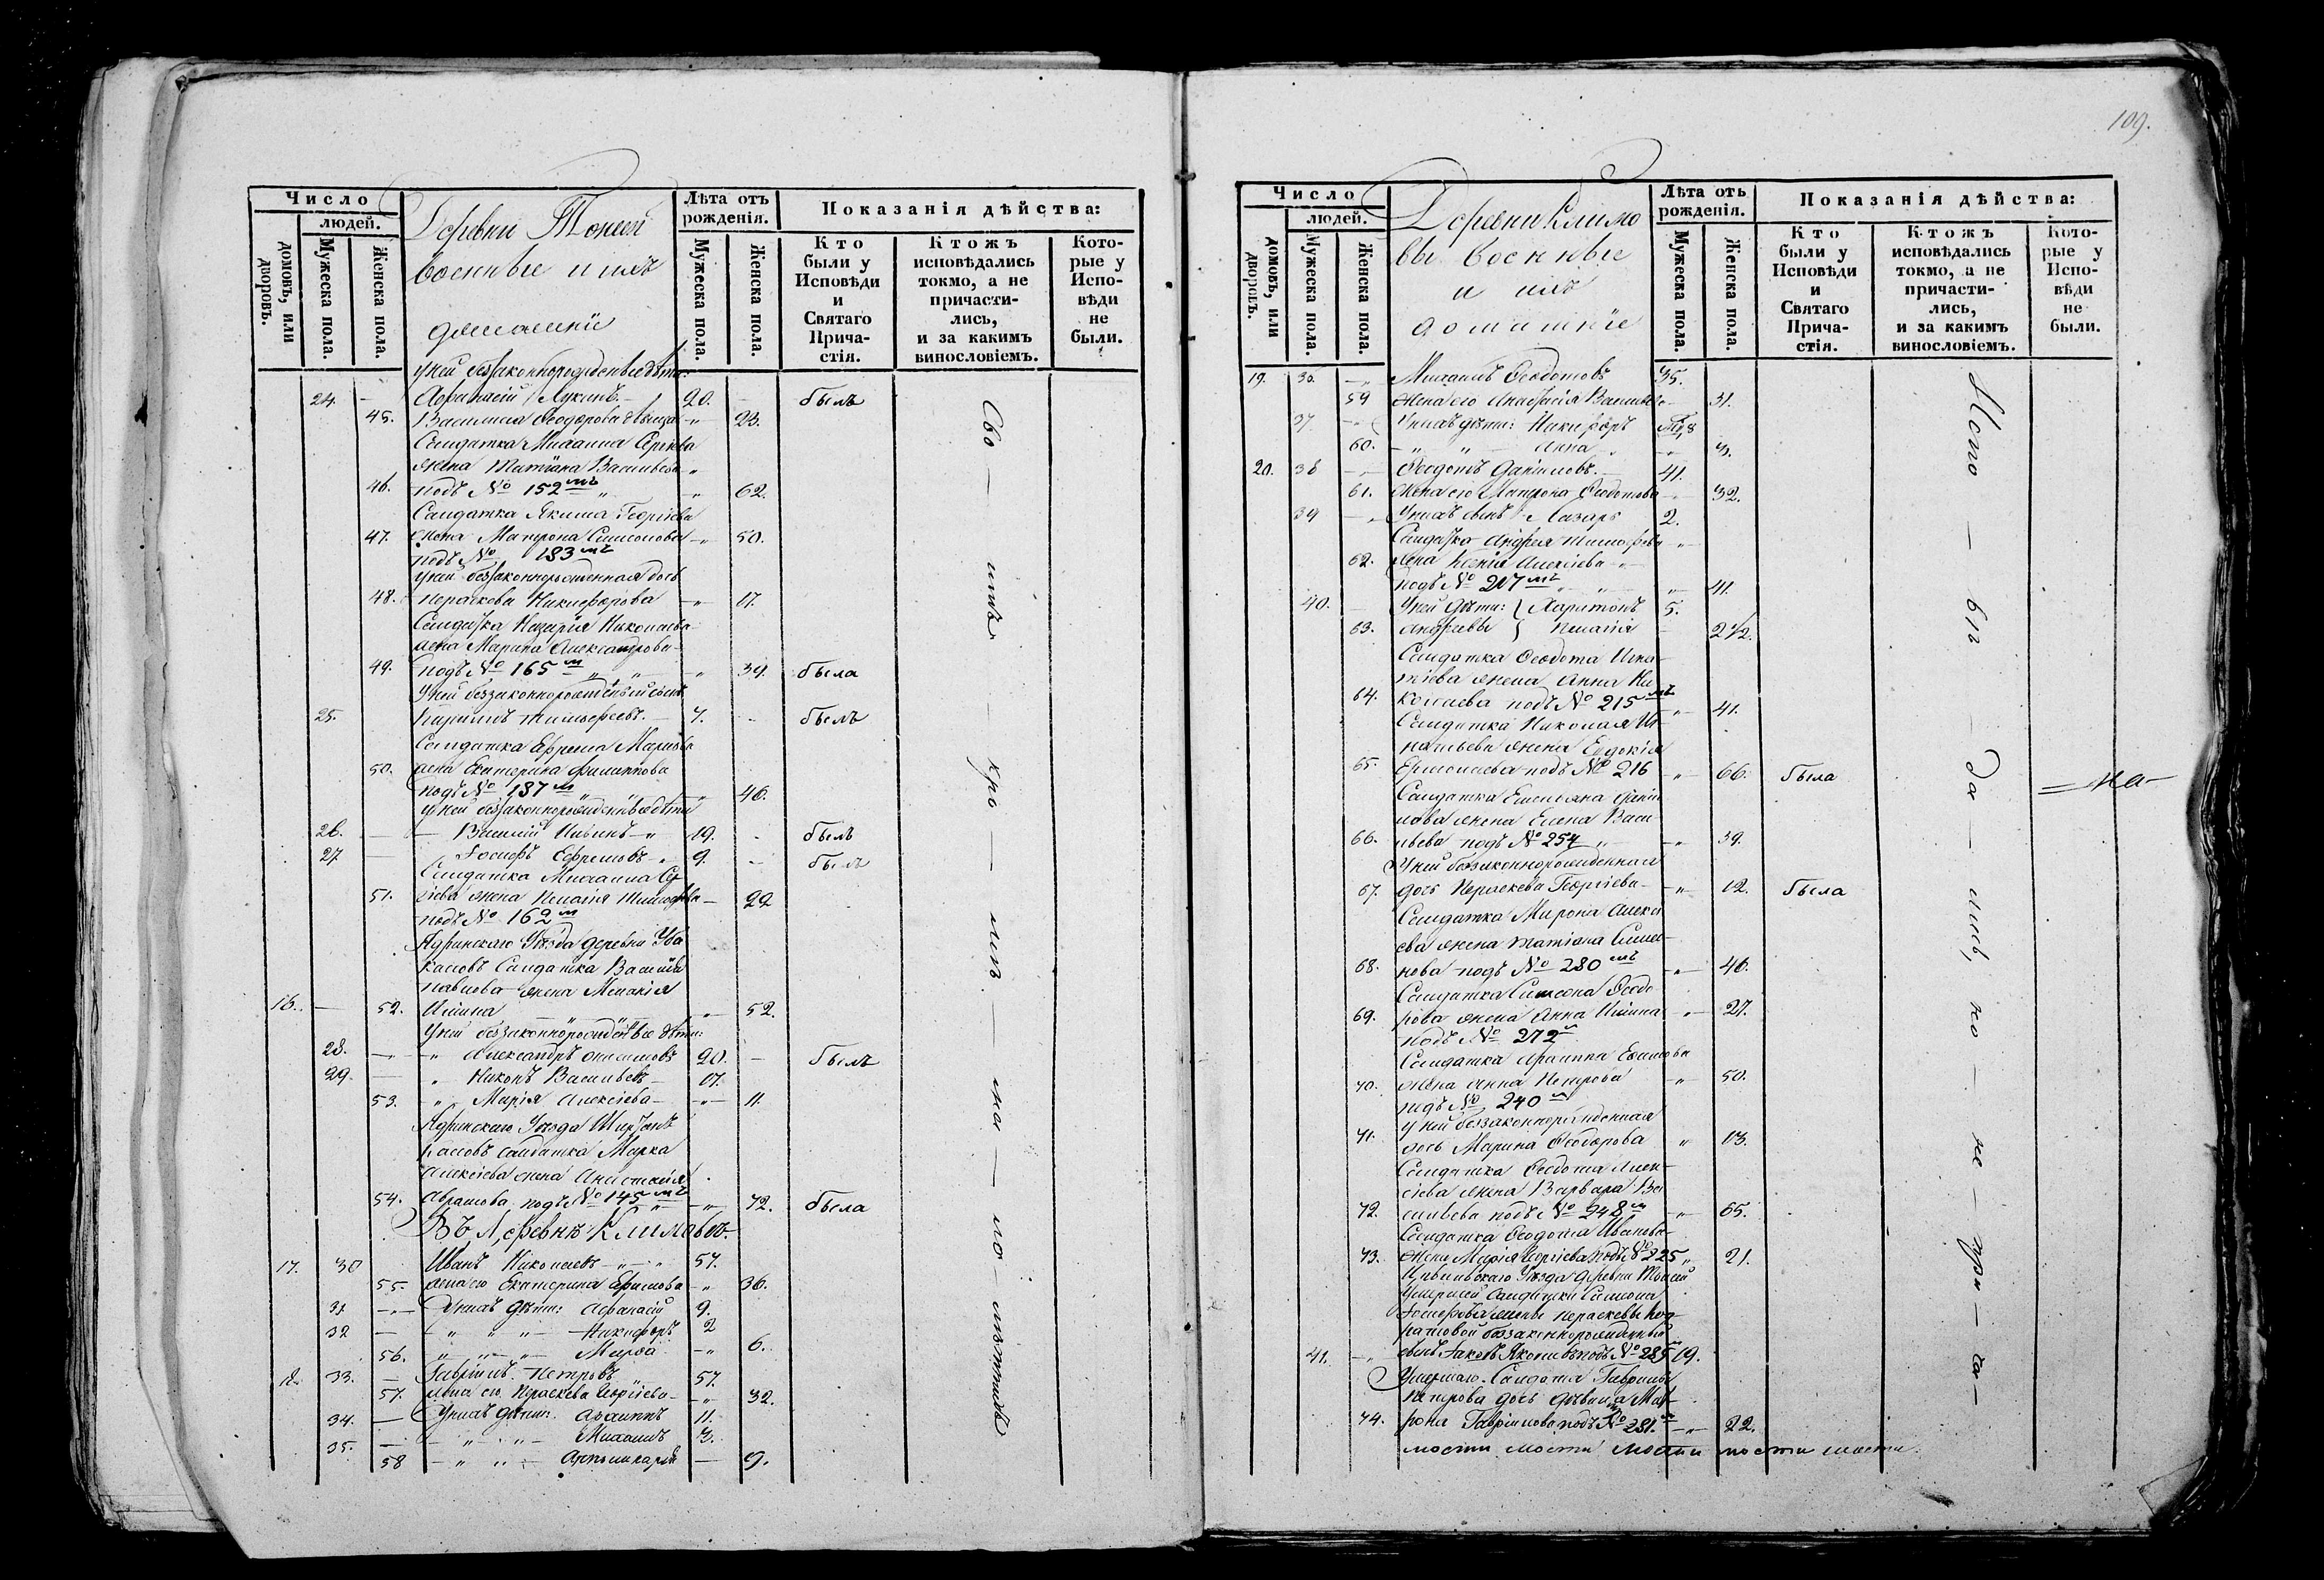 109.
Число
людей.
домовъ, или дворовъ.
Мужеска пола.
Женска пола.
Деревни
военные и ихъ
домашніе
Лѣта отъ рожденія.
Мужеска пола.
Женска пола.
Показанія дѣйства:
Кто были у Исповѣди и Святаго Прича-стія.
Ктожъ исповѣдались токмо, а не причасти-лись, и за какимъ винословіемъ.
Кото-рые у Испо-вѣди не были.
у ней беззаконнорожденные дѣти:
24. Афанасій Лукинъ 20. былъ
45. Василиса Ѳеодорова дѣвица 23.
Солдатка Михаила Сергѣева
жена Татіана Васильева
46. подъ № 152мъ 62.
Солдатка Якима Георгіева
47. жена Матрона Симеонова 50.
подъ № 183мъ
у ней беззаконнорожденная дочь
48. Параскева Никифорова 17.
Солдатка Назарія Николаева
жена Марина Александрова
49. подъ № 165м 34. была
У ней беззаконнорожденный сынъ
25. Тимофеевъ 7. былъ
Солдатка Ефрема
50. жена Екатерина Филиппова
подъ № 137м 46.
у ней беззаконнорожденные дѣти
26. Василій 19. былъ
27 Іосифъ Ефремовъ 9. былъ
Солдатка Михаила
51. жена Пелагія 22
подъ № 162м
Ядринскаго Уѣзда деревни
Солдатка Василія
Павлова жена Меланія
16. 52. Ильина 52.
У ней беззаконнорожденные дѣти:
28. Александръ 20. былъ
29. Никонъ Васильевъ 17.
53. Марія Алексѣева 11.
Ядринскаго Уѣзда
Солдатка Марка
Алексѣева жена Анастасія
54. Абрамова подъ № 145мъ 72. была
Въ Деревнѣ Климовой
17. 30 Иванъ Николаевъ 57.
55. жена его Екатерина Ефимова 36.
31 У нихъ дѣти: Афанасій 9.
32 Никифоръ 2
56. Марѳа 6.
18. 33. Гавріилъ Петровъ 57.
57. жена его Параскева Георгіева 32.
34. У нихъ дѣти: Архиппъ 11.
35. Михаилъ 3.
58 9.
Число
людей.
домовъ, или дворовъ.
Мужеска пола.
Женска пола.
Деревни Климо
вы военные
и ихъ
домашніе
Лѣта отъ рожденія.
Мужеска пола.
Женска пола.
Показанія дѣйства:
Кто были у Исповѣди и Святаго Прича-стія.
Ктожъ исповѣдались токмо, а не причасти-лись, и за какимъ винословіемъ.
Кото-рые у Испо-вѣди не были.
19. 36. Михаилъ Ѳеодотовъ 35.
59 жена его Анастасія Васильева 31.
37. У нихъ дѣти: Никифоръ
60. Анна 3.
20. 38 Ѳеодотъ Даніиловъ 41.
61. жена его Матрона Ѳеодотова 32.
39 У нихъ сынъ Лазарь 2.
Солдатка Андрея Тимофеева
62. жена Ксенія Алексѣева
подъ № 217мъ 41.
40. У ней дѣти: Харитонъ 5.
63. Андреевы Пелагія 2 1/2.
Солдатка Ѳеодота Игна
тіева жена Анна Ни
64. колаева подъ № 215мъ 41.
Солдатка Николая Иг
натьева жена Евдокія
65. Ермолаева подъ № 216 66. была
Солдатка Емельяна Дани
лова жена Елена Васи
66. льева подъ № 254 39.
У ней беззаконнорожденная
67. дочь Параскева Георгіева 12. была
Солдатка Мирона Алексѣ
ева жена Татіана Симео
68. нова подъ № 280мъ 46.
Солдатка Симеона Ѳеодо
69. рова жена Анна Ильина 27.
подъ № 272м
Солдатка Архиппа Ефимова
70. жена Анна Петрова 50.
подъ № 240м
у ней беззаконнорожденная
71. дочь Марина Ѳеодорова 13.
Солдатка Ѳеодота Алек
сѣева жена Варвара Ва
72. сильева подъ № 248м 65.
Солдатка Ѳеодота Иванова
73. жена Марія Георгіева подъ № 225 21.
Цивильскаго Уѣзда деревни
Умершей Солдатки Симеона
Іосифова жены Параскевы
беззаконнорожденный
41. сынъ Іаковъ Яковлевъ подъ № 285 19.
Умершаго Солдата Гавріила
Петрова дочь дѣвица Мат
74. рона Гавріилова подъ № 281.м 22.